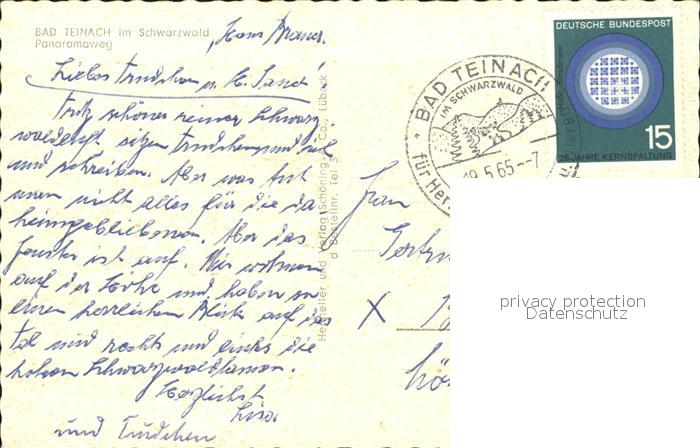 BAD TEINACH im Schwarzwald
Panoramaweg
Haus
Liebes Trudchen u.
Trotz schöner reiner Schwarz
waldluft sitzen Trudchen und ich
und schreiben. Aber was tut
man nicht alles für die da
heimgebliebenen. Aber das
Fenster ist auf. Wir wohnen
auf der Höhe und haben so
einen herrlichen Blick auf das
Tal und rechts und links die
hohen Schwarzwaldtannen.
Herzlichst
Lisa
und Trudchen
Hersteller und Verlag Schöning & Co., Lübeck
Bestellnr. Tei 3
BAD TEINACH
IM SCHWARZWALD
19.5.65--7
für Her
DEUTSCHE BUNDESPOST
15
25 JAHRE KERNSPALTUNG
Frau
X
privacy protection
Datenschutz